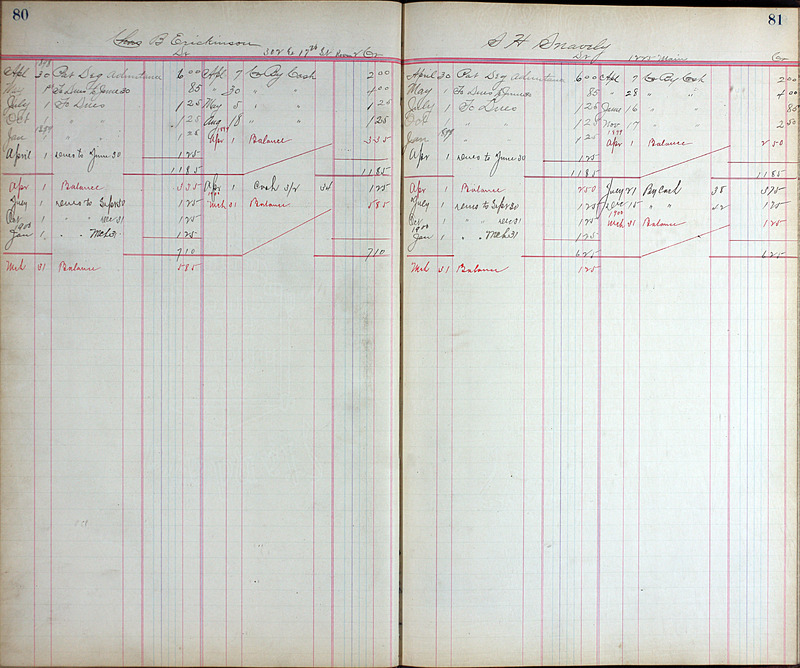 80
Chas B Erickinson
302 E 17th St Room 2
Dr Cr
1898
Apl 30 Per Deg Admittance 6 00 Apl 7 By Cash 2 00
May 1 To Dues to June 30 85 " 30 " " 4 00
July 1 To Dues 1 25 May 5 " " 1 25
Oct 1 " " 1 25 Aug 18 " " 1 25
1899 1899
Jan 1 " " 1 25 Apr 1 Balance 3 35
April 1 Dues to June 30 1 25
11 85 11 85
Apr 1 Balance 3 35 Apr 1 Cash S/r 34 1 25
1900
July 1 Dues to Sep 30 1 25 Mch 31 Balance 5 85
Oct 1 " " Dec 31 1 25
1900
Jan 1 " " Mch 31 1 25
7 10 7 10
Mch 31 Balance 5 85
81
S H Snavely
Dr 1222 Main Cr
April 30 Per Deg Admittance 6 00 Apl 7 By Cash 2 00
May 1 To Dues to June 30 85 " 28 " " 4 00
July 1 To Dues 1 25 June 16 " " 85
Oct 1 " " 1 25 Nov 17 " " 2 50
1899 1899
Jan 1 " " 1 25 Apr 1 Balance 2 50
Apr 1 Dues to June 30 1 25
11 85 11 85
Apr 1 Balance 2 50 July 21 By Cash 38 3 75
July 1 Dues to Sep 30 1 25 Dec 15 " " 52 1 25
1900
Oct 1 " " Dec 31 1 25 Mch 31 Balance 1 25
1900
Jan 1 " " Mch 31 1 25
6 25 6 25
Mch 31 Balance 1 25